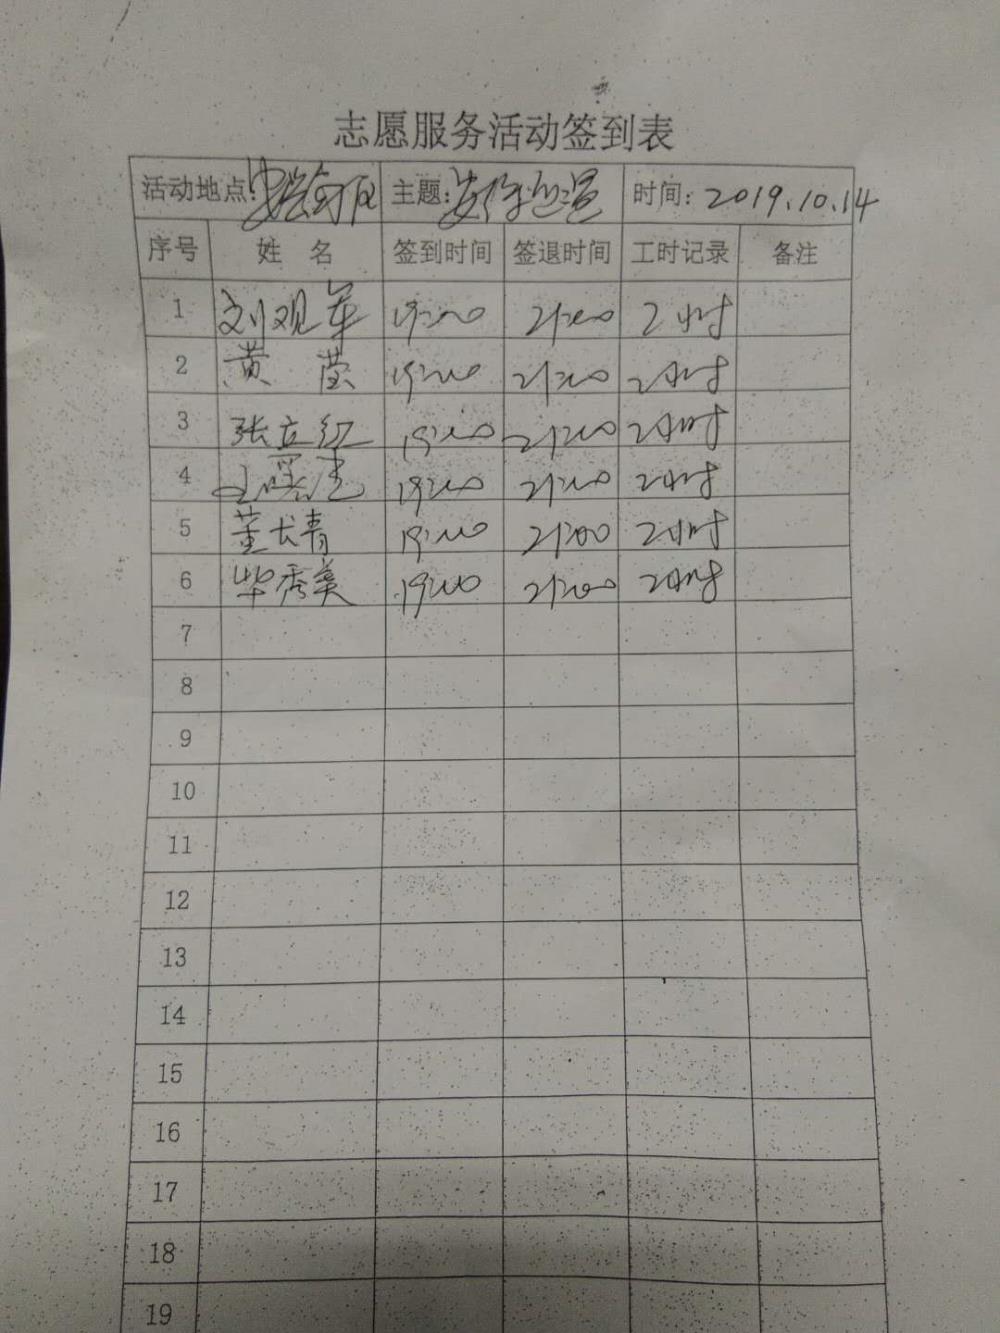 志愿服务活动签到表
活动地点: 主题: 时间: 2019.10.14
序号 姓名 签到时间 签退时间 工时记录 备注
1 刘观军 19:00 21:00 2小时
2 黄莹 19:00 21:00 2小时
3 张立红 19:00 21:00 2小时
4 19:00 21:00 2小时
5 董长青 19:00 21:00 2小时
6 毕秀美 19:00 21:00 2小时
7
8
9
10
11
12
13
14
15
16
17
18
19